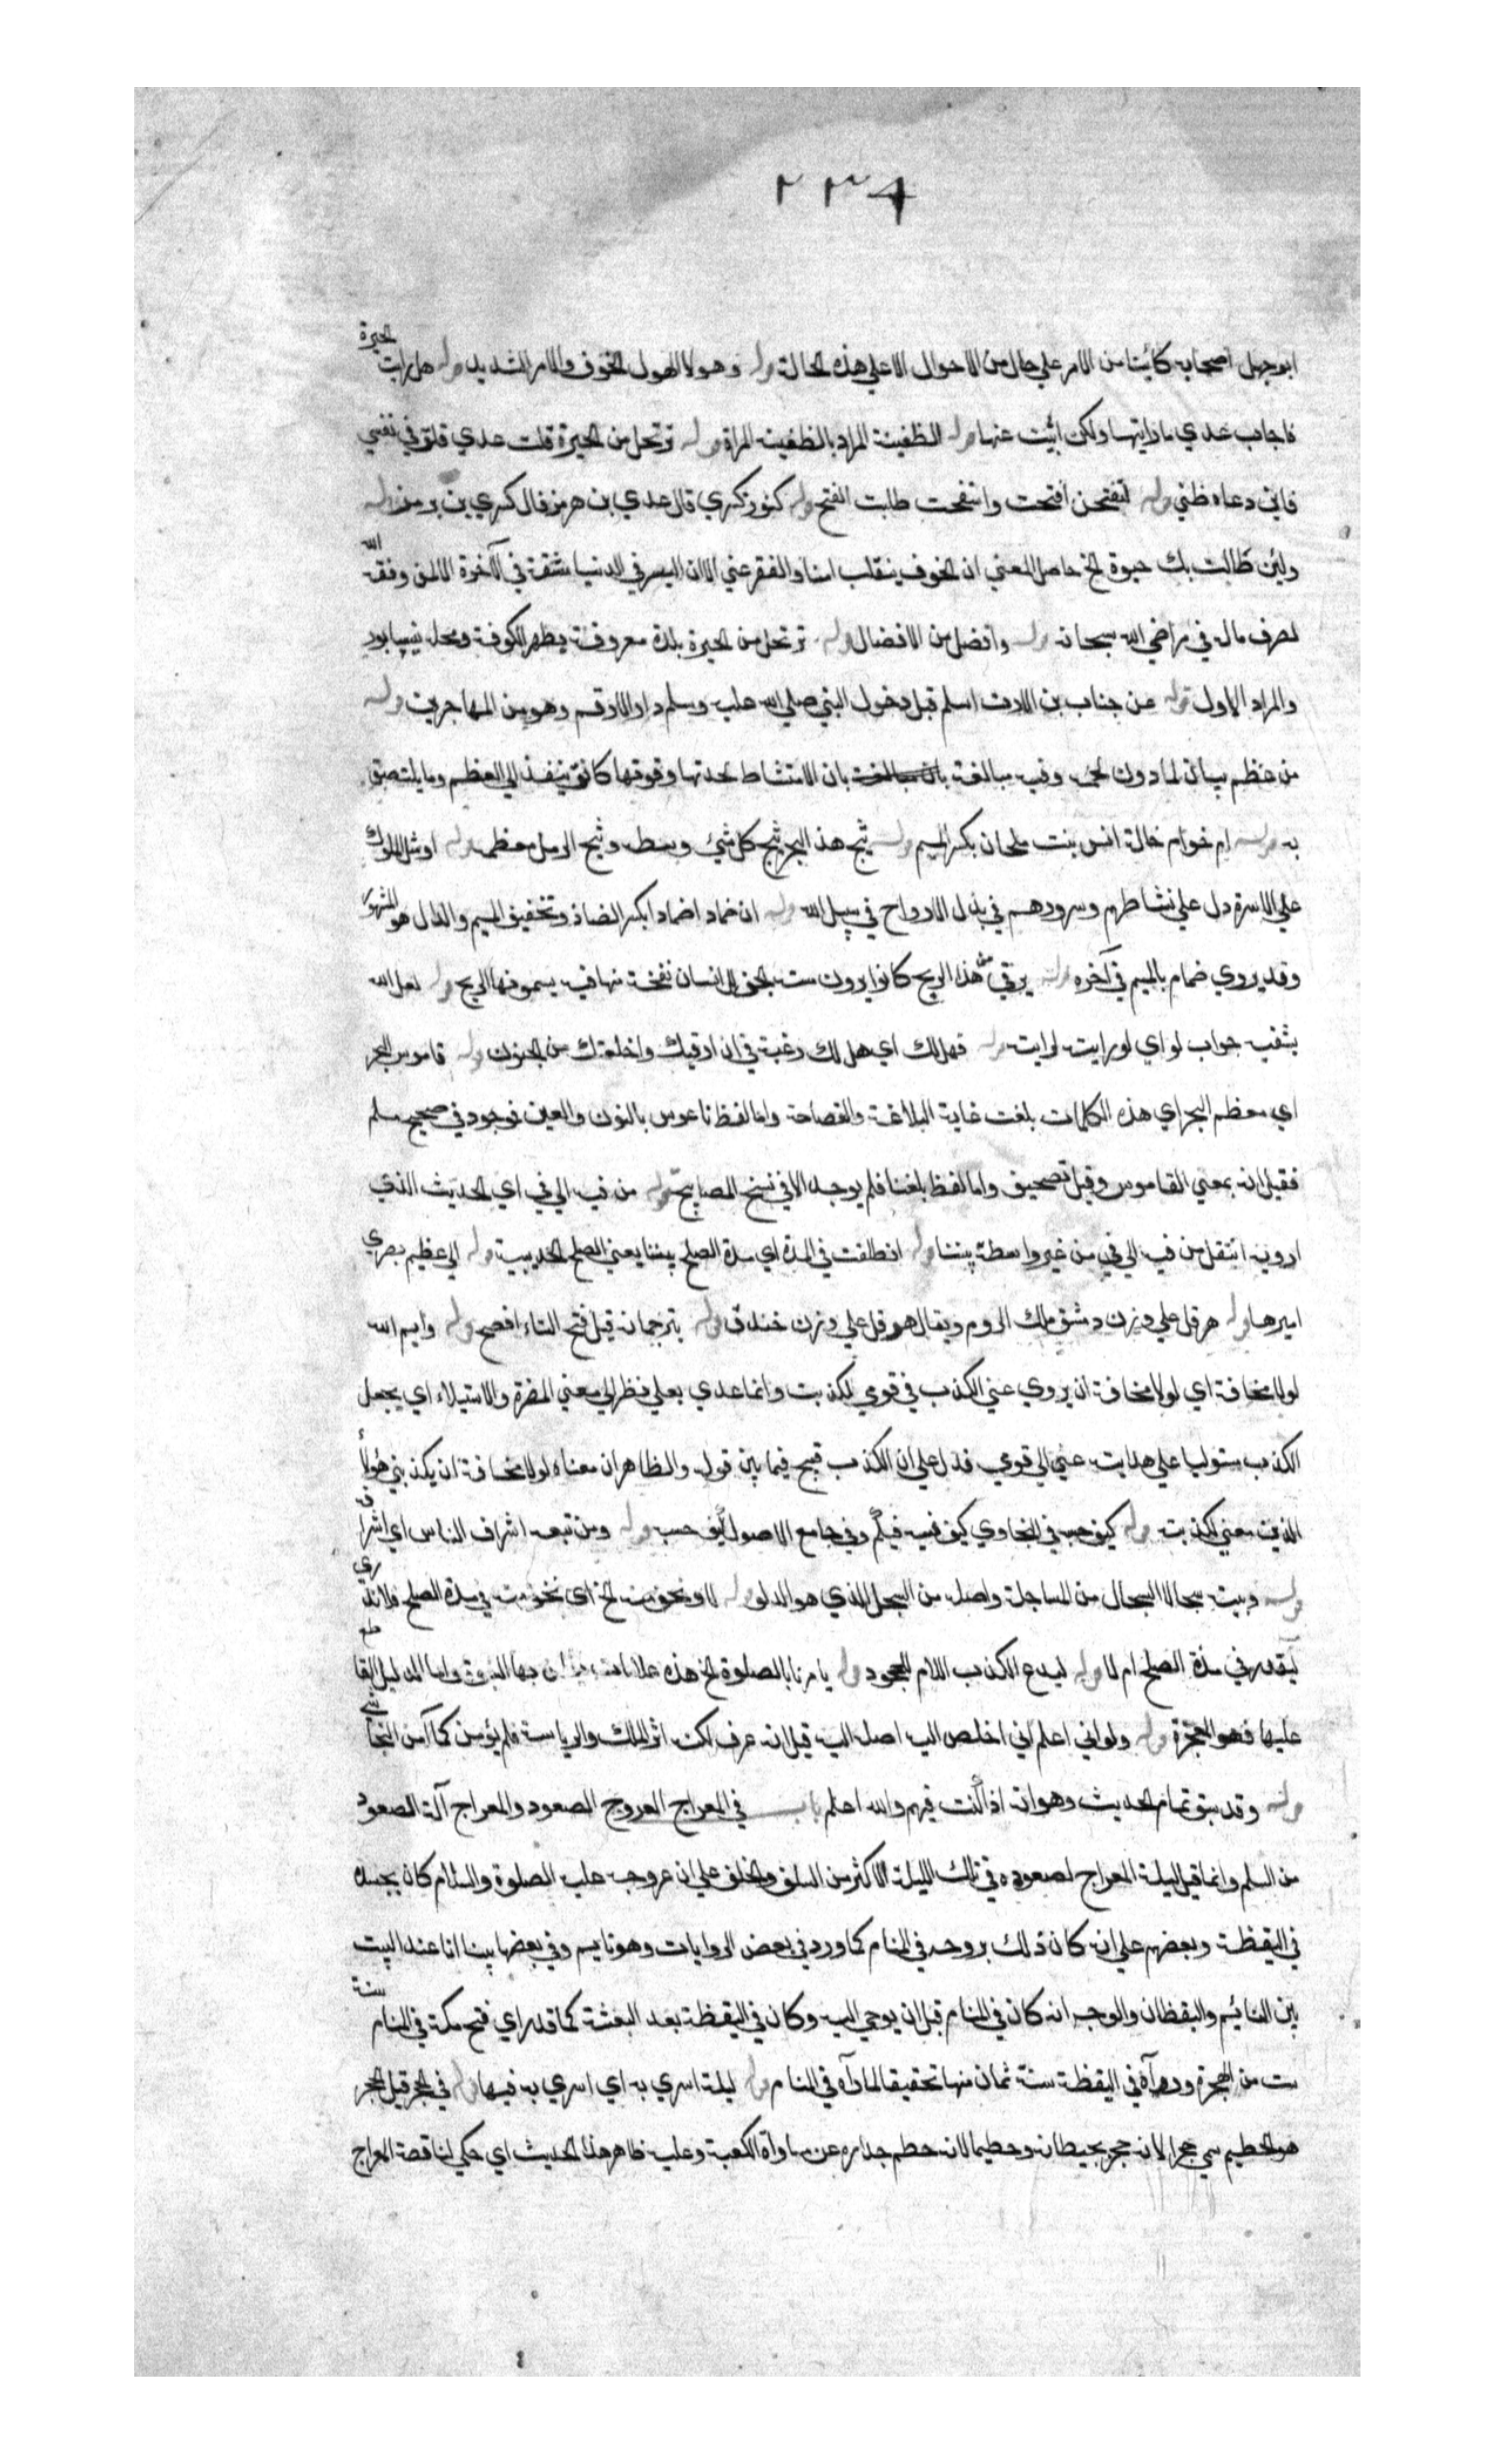 ٢٣٤
ابو جهل اصحابه كائنا من الامر علي حال من الاحوال الا علي هذه الحالة قوله وهولا الهول الخوف والامر الشديد قوله هل رايت الحيرة
فاجاب عدي ما رايتها ولكن انبئت عنها قوله الظعينة المراد بالظعينة المراة قوله ترتحل من الحيرة قلت عدي قلت في نفسي
فاين دعاه ظني قوله لتفتحن افتحت وانتفحت طابت الفتح قوله كنوز كسري قال عدي بن هرمز قال كسري بن برمز قوله
ولين طالت بك حيوة الخ حاصل المعني ان الخوف ينقلب امنا والفقر غني الا ان اليسر في الدنيا مشقة في الآخرة الا لمن وفقه الله
لصرف ماله في مراضي الله سبحانه قوله وافضل من الافضال قوله ترتحل من الحيرة بلدة معروفة بظهر الكوفة ومحلة نيسابور
والمراد الاول قوله عن جناب بن الارت اسلم قبل دخول النبي صلي الله عليه وسلم دار الارقم وهو من المهاجرين قوله
من عظم بيان لما دون لحمه وفيه مبالغة بان الامتشاط لحدتها وقوتها كانت ينفذ الي العظم وما يلتصق
به قوله ام حرام خالة انس بنت ملحان بكسر الميم قوله ثبج هذا البحر ثبج كل شئ وسطه وثبج الرمل معظمه قوله او مثل الملوك
علي الاسرة دل علي نشاطهم وسرورهم في بذل الارواح في سبيل الله قوله ان ضماد اضمادا بكسر الضاد وتخفيف الميم والدال هو المشهور
وقد يروي ضمام بالميم في آخره قوله يرقي من هذا الريح كانوا يرون مت الجن الانسان نفخة منها فيه يسمونها الريح قوله لعل الله
يشفيه جواب لو اي لو رايته لرايت قوله فهل لك اي هل لك رغبة في ان ارقيك واخلصك من الجنون قوله قاموس البحر
اي معظم البحر اي هذه الكلمات بلغت غاية البلاغة والفصاحة واما لفظ ناعوس بالنون والعين فوجود في صحيح مسلم
فقيل انه بمعني القاموس وقيل تصحيف واما لفظ بلغنا فلم يوجد الا في نسخ المصابيح قوله من فيه الي في اي الحديث الذي
ارويه انتقل من فيه الي في من غير واسطة بيننا قوله انطلقت في المدة اي مدة الصلح بيننا يعني الصلح الحديبية قوله الي عظيم بصري
اميرها قوله هرقل علي وزن دمشق ملك الروم ويقال هرقل علي وزن خندق قوله بترجمانه قيل فتح التاء افصح قوله وايم الله
لولا مخافة اي لولا مخافة ان يروي عني الكذب في قومي لكذبت وانما عدي بعلي نظر الي معني المضرة والاستيلاء اي يجعل
الكذب مستوليا علي هدايته عني الي قومي فدل علي ان الكذب قبيح فيما بين قوله والظاهر ان معناه لولا مخافة ان يكذبني هؤلاء
الذين معي لكذبت قوله كيف حسبه في البخاري كيف نسبه فيكم وفي جامع الاصول كيف حسبه قوله ومن تبعه اشراف الناس اي اشراف
قوله وبينه سجالا السجال من المساجلة واصله من السجل الذي هو الدلو قوله لا ونحن منه الخ اي نحن منه في مدة الصلح فلا ندري
ليغدر في مدة الصلح ام لا قوله ليدع الكذب اللام للجحود قوله يامرنا بالصلوة الخ هذه علامات بها النبوة واما الدليل القاطع
عليها فهو المعجزة قوله ولو اني اعلم اني اخلص اليه اصل اليه قيل انه عرف لكن اثر الملك والرياسة فلم يؤمن كما آمن النجاشي
قوله وقد سبق تمام الحديث وهو انه اذا كنت فيهم والله اعلم باب في المعراج العروج الصعود والمعراج آلة الصعود
من السلم وانما قيل ليلة المعراج لصعوده في تلك الليلة الاكثر من السلف والخلف علي ان عروجه عليه الصلوة والسلام كان بجسده
في اليقظة وبعضهم علي انه كان ذلك بروحه في المنام كما ورد في بعض الروايات وهو نايم وفي بعضها بينا انا عند البيت
بين النائيم واليقظان والوجه انه كان في المنام قبل ان يوحي اليه وكان في اليقظة بعد البعثة كما قد راي فتح مكة في المنام سنة
ست من الهجرة ورآه في اليقظة سنة ثمان منها تحقيقا لما رآه في المنام قوله ليلة اسري به اي اسري به فيها قوله في الحجر قيل الحجر
هو الحطيم سمي حجرا لانه حجر بحيطانه وحطيما لانه حطم جداره عن مساواة الكعبة وعليه ظاهر هذا الحديث اي حكي لنا قصة المعراج